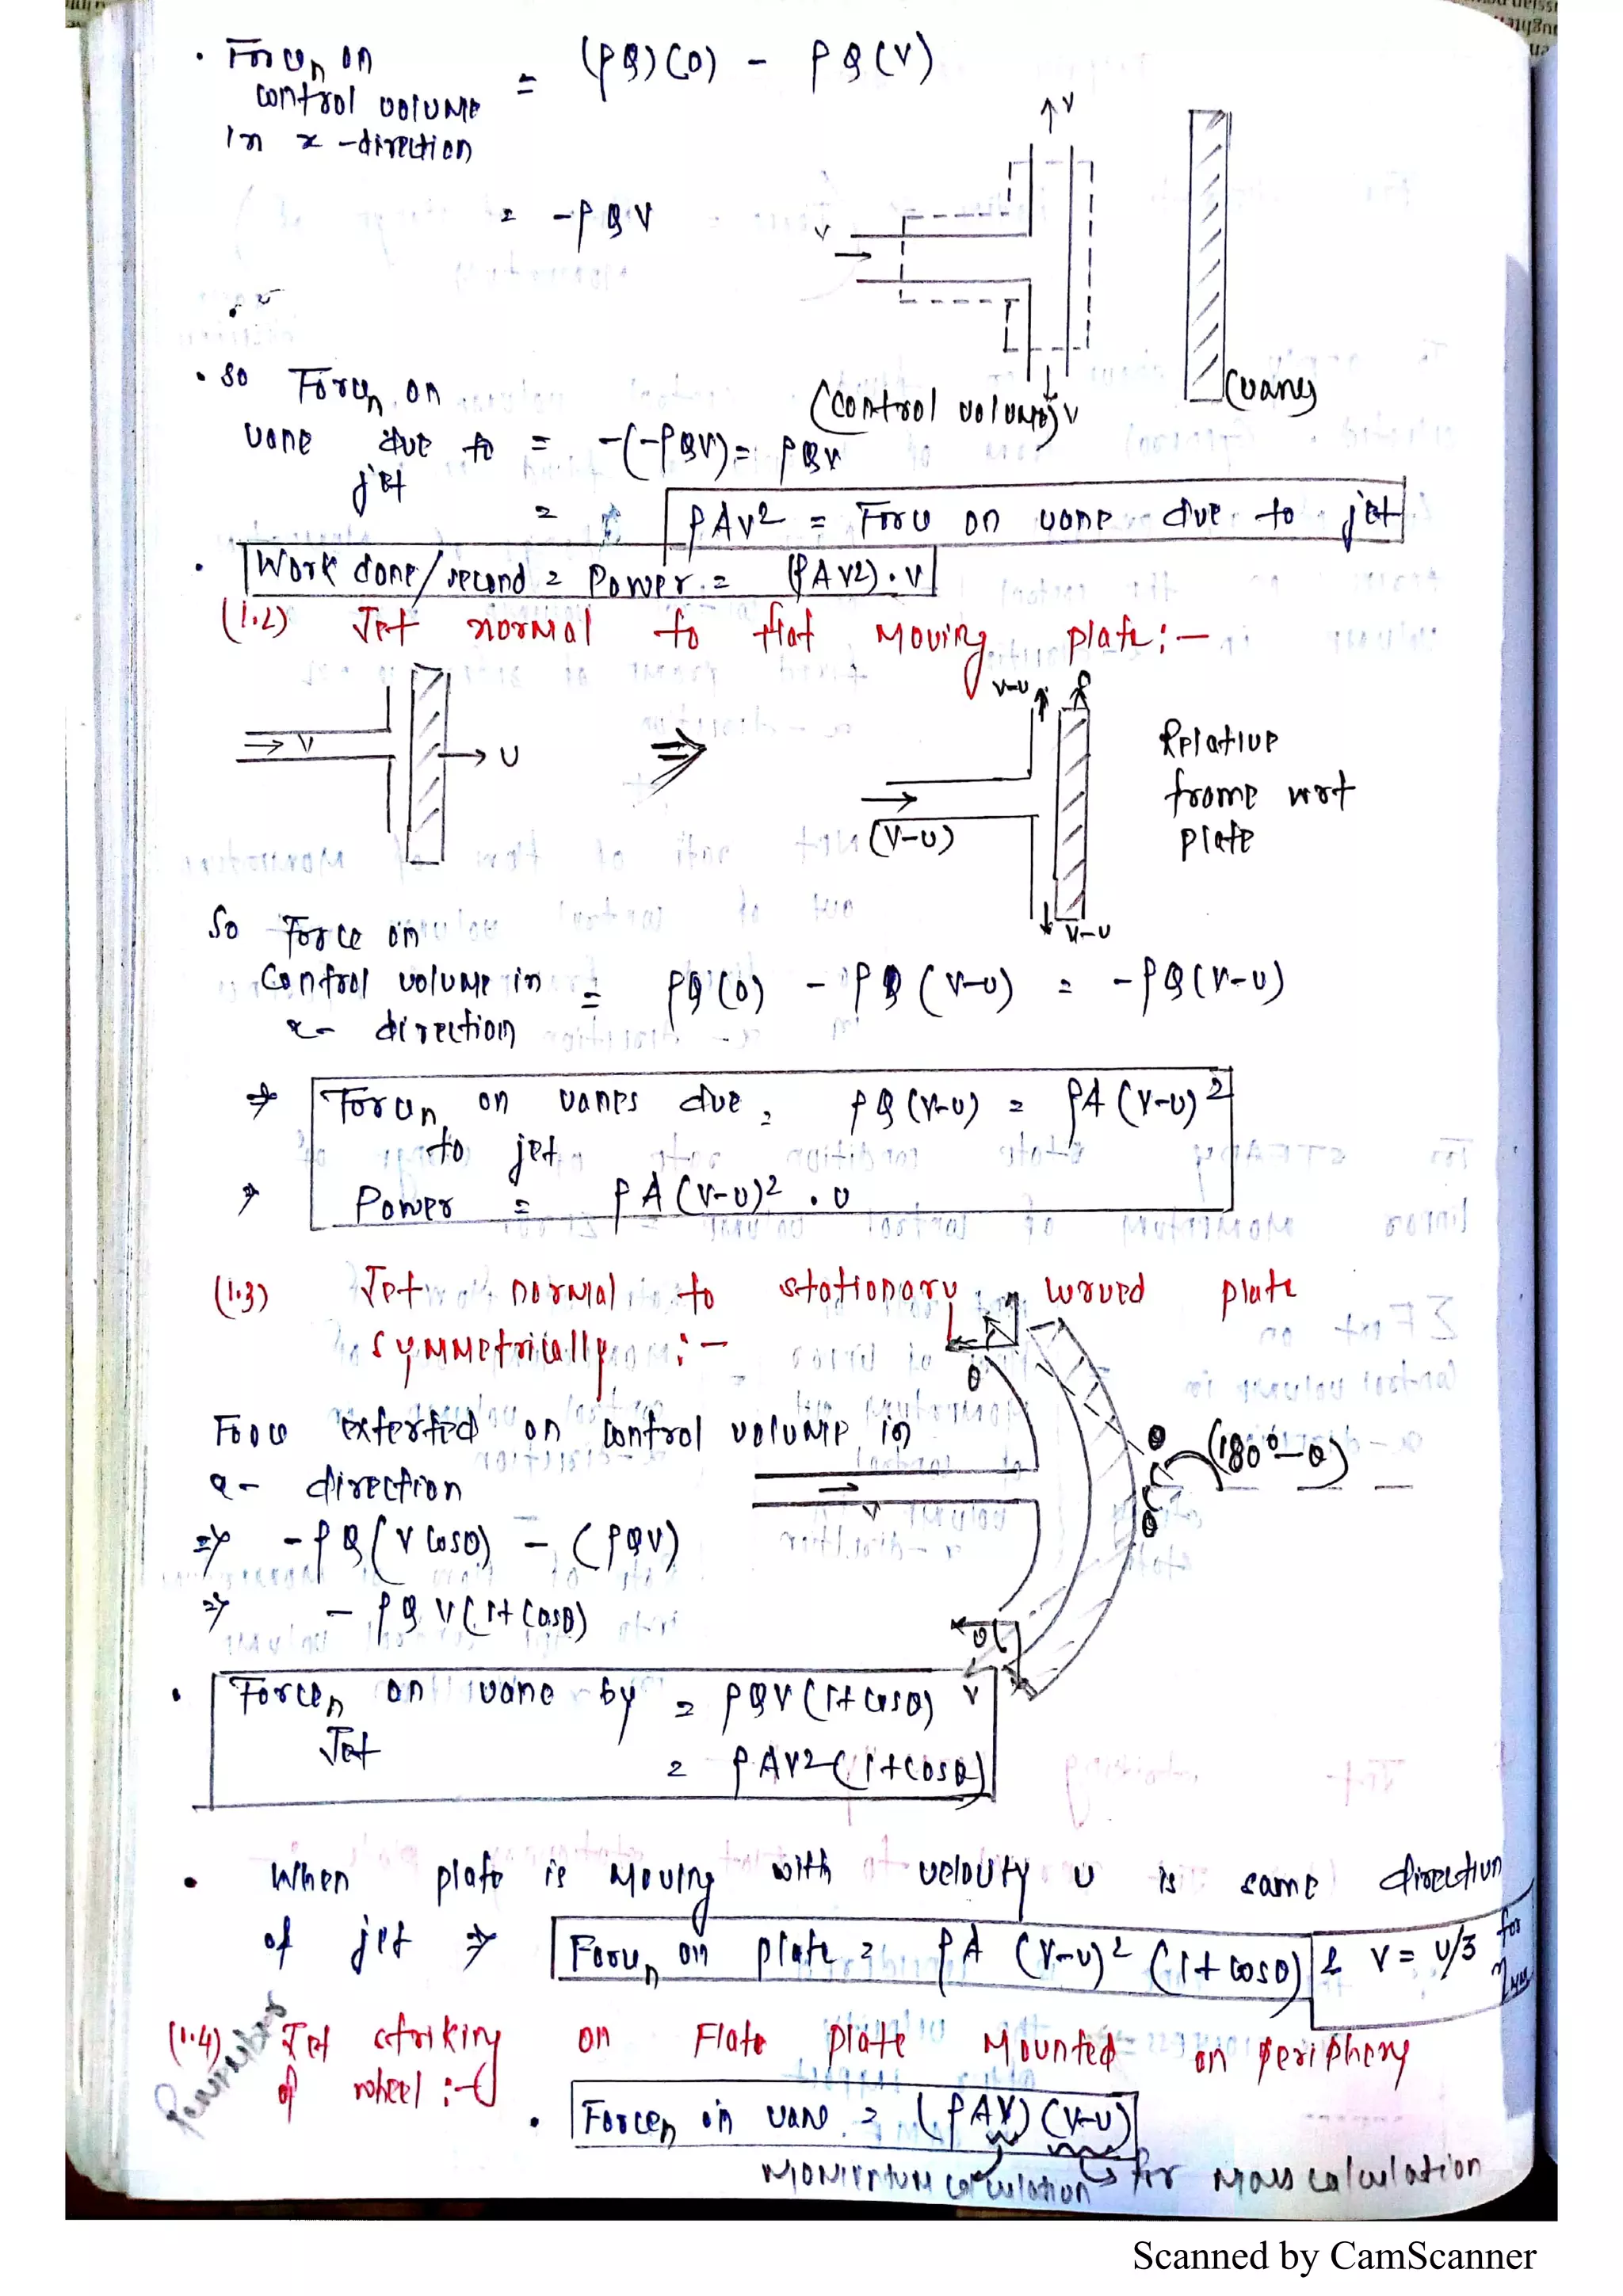 • Forcen on = (ρQ)(0) - ρQ(V)
control volume
in x-direction
= -ρQV
V
V
V
(control volume)
(vane)
• so Forcen on
vane due to = -(-ρQV) = ρQV
jet
= ρAV2 = Force on vane due to jet
• Work done/second = Power = (ρAV2).V
(1.2) Jet normal to flat moving plate:-
V
U
V-U
(V-U)
V-U
Relative
frame wrt
plate
So Force on
Control volume in = ρQ(0) - ρQ(V-U) = -ρQ(V-U)
x- direction
⇒ Forcen on vanes due = ρQ(V-U) = ρA(V-U)2
to jet
⇒ Power = ρA(V-U)2 . U
(1.3) Jet normal to stationary curved plate
symmetrically :-
θ
Force exterted on control volume in
x- direction
V
θ
(180°-θ)
θ
⇒ -ρQ(V cosθ) - (ρQV)
⇒ - ρQV(1+cosθ)
θ
V
• Forcen on vane by = ρQV(1+cosθ)
Jet
= ρAV2(1+cosθ)
• When plate is moving with velocity U is same direction
of jet ⇒ Forcen on plate = ρA (V-U)2 (1+cosθ) & V = U/3 for
(1.4) Jet striking on Flate plate Mounted on periphery
of wheel :-
Remember
• Forcen on vane = (ρAV)(V-U)
Momentum calculation for Mass calculation
Scanned by CamScanner